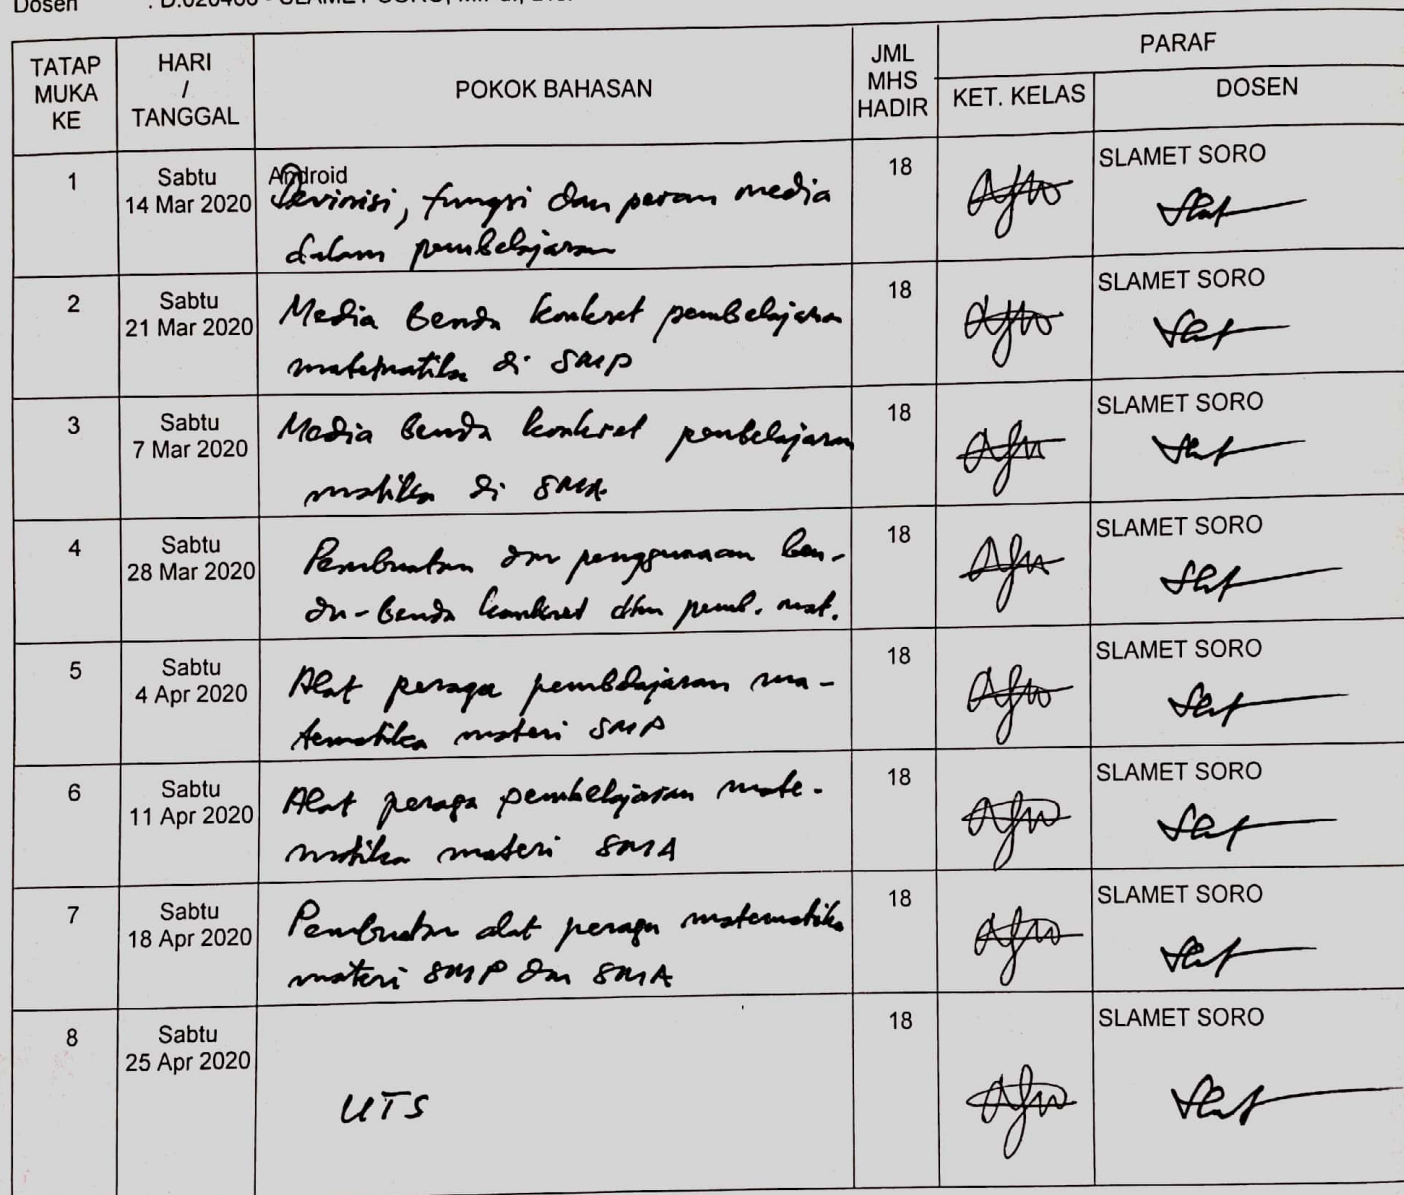 Dosen : D.020408 - SLAMET SORO, M.Pd.,
TATAP MUKA KE
HARI / TANGGAL
POKOK BAHASAN
JML MHS HADIR
PARAF
KET. KELAS
DOSEN
1
Sabtu
14 Mar 2020
Android
Devinisi, fungsi dan peran media
dalam pembelajaran
18
SLAMET SORO
2
Sabtu
21 Mar 2020
Media benda konkret pembelajaran
matematika di SMP
18
SLAMET SORO
3
Sabtu
7 Mar 2020
Media benda konkret pembelajaran
matika di SMA
18
SLAMET SORO
4
Sabtu
28 Mar 2020
Pembuatan dan penggunaan ben-
da-benda konkret dlm pemb. mat.
18
SLAMET SORO
5
Sabtu
4 Apr 2020
Alat peraga pembelajaran ma-
tematika materi SMP
18
SLAMET SORO
6
Sabtu
11 Apr 2020
Alat peraga pembelajaran mate-
matika materi SMA
18
SLAMET SORO
7
Sabtu
18 Apr 2020
Pembuatan alat peraga matematika
materi SMP dan SMA
18
SLAMET SORO
8
Sabtu
25 Apr 2020
UTS
18
SLAMET SORO